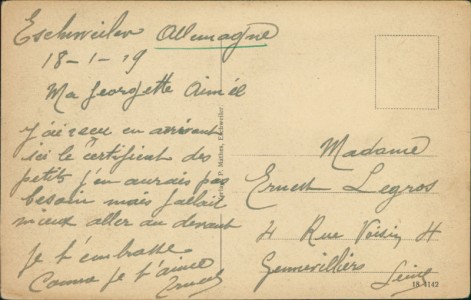 Eschweiler Allemagne
18-1-19
Ma Georgette Aimée
J'ai reçu en arrivant
ici le certificat des
petits j'en aurais pas
besoin mais fallait
mieux aller au devant
Je t'embrasse
Comme je t'aime
Ernest
P. Mathes, Eschweiler.
Madame
Ernest Legros
4 Rue Voisin 4
Gennevilliers
Seine
18 4142